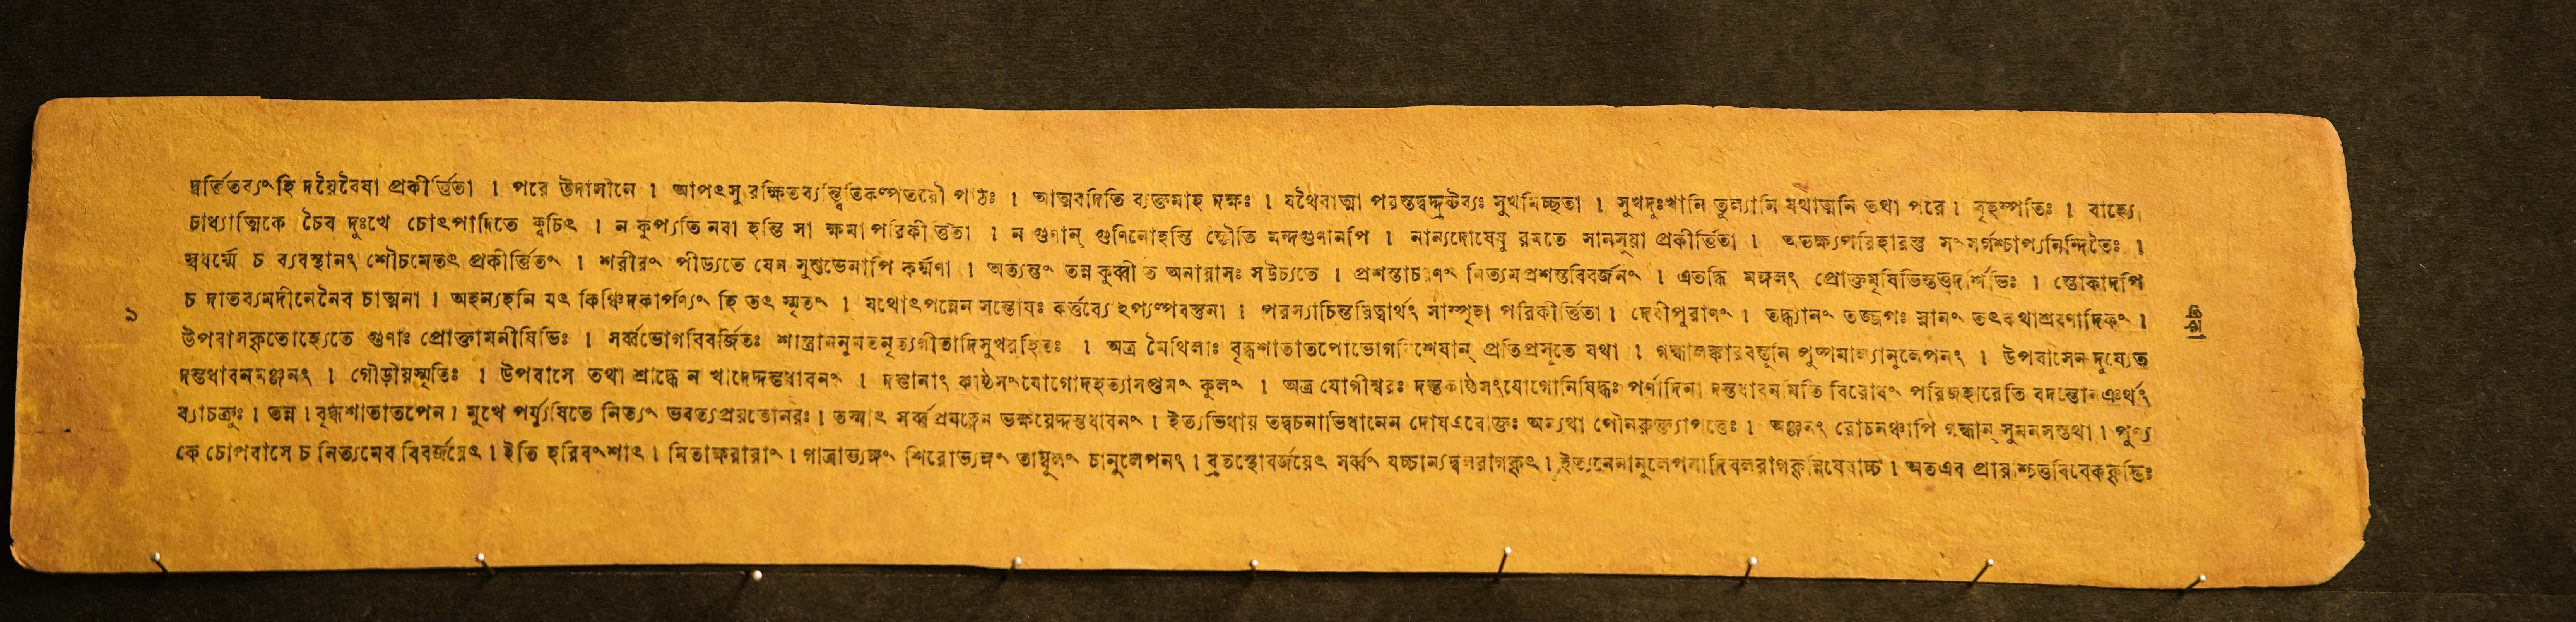 দ্বর্ত্তিতব্যং হি দয়ৈবৈষা প্রকীর্ত্তিতা । পরে উদাসীনে । আপৎসু রক্ষিতব্যন্ত্বিতিকল্পতরৌ পাঠঃ । আত্মবদিতি ব্যক্তমাহ দক্ষঃ । যথৈবাত্মা পরস্তদ্বদ্দ্রষ্টব্যঃ সুখমিচ্ছতা । সুখদুঃখানি তুল্যানি যথাত্মনি তথা পরে । বৃহস্পতিঃ । বাহ্যে
চাধ্যাত্মিকে চৈব দুঃখে চোৎপাদিতে ক্বচিৎ । ন কুপ্যতি নবা হন্তি সা ক্ষমা পরিকীর্ত্তিতা । ন গুণান্ গুণিনোহন্তি স্তৌতি মন্দগুণানপি । নান্যদোষেষু রমতে সানসূয়া প্রকীর্ত্তিতা । অভক্ষ্যপরিহারস্তু সংসর্গশ্চাপ্যনিন্দিতৈঃ ।
স্বধর্ম্মে চ ব্যবস্থানং শৌচমেতৎ প্রকীর্ত্তিতং । শরীরং পীড্যতে যেন সুশুভেনাপি কর্ম্মণা । অত্যন্তং তন্ন কুর্ব্বীত অনায়াসঃ সউচ্যতে । প্রশস্তাচরণং নিত্যমপ্রশস্তবিবর্জনং । এতদ্ধি মঙ্গলং প্রোক্তমৃষিভিস্তত্ত্বদর্শিভিঃ । স্তোকাদপি
৯ চ দাতব্যমদীনেনৈব চাত্মনা । অহন্যহনি যৎ কিঞ্চিদকার্পণ্যং হি তৎ স্মৃতং । যথোৎপন্নেন সন্তোষঃ কর্ত্তব্যোহপ্যল্পবস্তুনা । পরস্যাচিন্তয়িত্বার্থং সাস্পৃহা পরিকীর্ত্তিতা । দেবীপুরাণং । তদ্ধ্যানং তজ্জপঃ স্নানং তৎকথাশ্রবণাদিকং ।
উপবাসকৃতোহ্যেতে গুণাঃ প্রোক্তামনীষিভিঃ । সর্ব্বভোগবিবর্জিতঃ শাস্ত্রাননুমতনৃত্যগীতাদিসুখরহিতঃ । অত্র মৈথিলাঃ বৃদ্ধশাতাতপোভোগবিশেষান্ প্রতিপ্রসূতে যথা । গন্ধালঙ্কারবস্তূনি পুষ্পমাল্যানুলেপনং । উপবাসেন দুষ্যেত
দন্তধাবনমঞ্জনং । গৌড়ীয়স্মৃতিঃ । উপবাসে তথা শ্রাদ্ধে ন খাদেদ্দন্তধাবনং । দন্তানাং কাষ্ঠসংযোগোদহত্যাসপ্তমং কুলং । অত্র যোগীশ্বরঃ দন্তকাষ্ঠসংযোগোনিষিদ্ধঃ পর্ণাদিনা দন্তধাবনমিতি বিরোধং পরিজহারেতি বদন্তোনঞর্থং
ব্যাচক্রুঃ । তন্ন । বৃদ্ধশাতাতপেন । মুখে পর্য্যুষিতে নিত্যং ভবত্যপ্রয়তোনরঃ । তস্মাৎ সর্ব্বপ্রযত্নেন ভক্ষয়েদ্দন্তধাবনং । ইত্যভিধায় তদ্বচনাভিধানেন দোষএবোক্তঃ অন্যথা পৌনরুক্ত্যাপত্তেঃ । অঞ্জনং রোচনঞ্চাপি গন্ধান্ সুমনসস্তথা । পুণ্য
কে চোপবাসে চ নিত্যমেব বিবর্জয়েৎ । ইতি হরিবংশাৎ । মিতাক্ষরায়াং । গাত্রাভ্যঙ্গং শিরোভ্যঙ্গং তাম্বূলং চানুলেপনং । ব্রতস্থোবর্জয়েৎ সর্ব্বং যচ্চান্যদ্বলরাগকৃৎ । ইত্যনেনানুলেপনাদিবলরাগকৃন্নিষেধাচ্চ । অতএব প্রায়শ্চিত্তবিবেককৃদ্ভিঃ